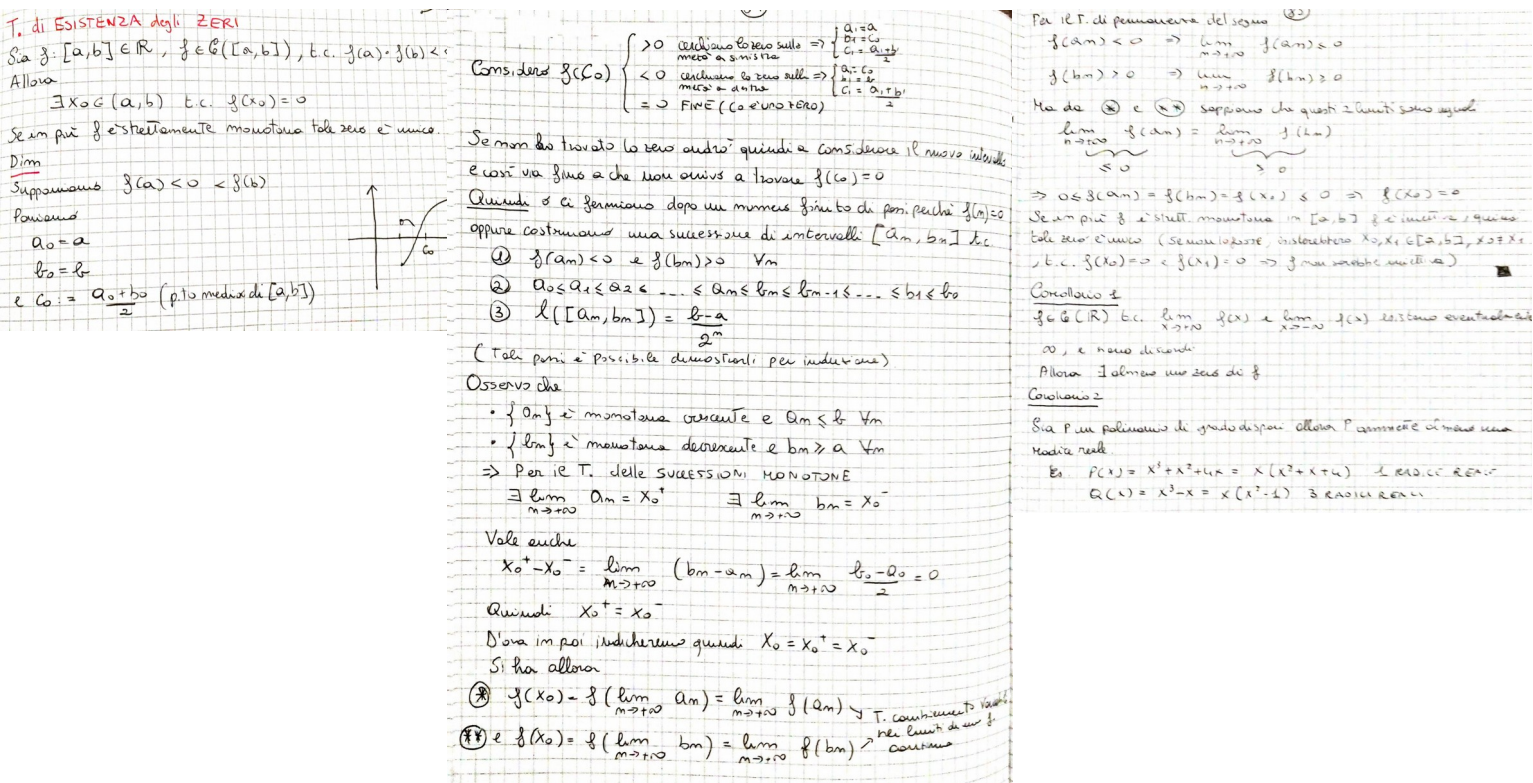 T. di ESISTENZA degli ZERI
Sia f: [a,b] ∈ ℝ, f ∈ C([a,b]), t.c. f(a)·f(b) <
Allora
∃ x₀ ∈ (a,b) t.c. f(x₀) = 0
Se in più f è strettamente monotona tale zero è unico.
Dim
Supponiamo f(a) < 0 < f(b)
Poniamo
a₀ = a
b₀ = b
e C₀ := (a₀+b₀)/2 (p.to medio di [a,b])
C₀
Considero f(C₀)
>0 cerchiamo lo zero sulla metà a sinistra => { a₁=a b₁=C₀ C₁=(a₁+b₁)/2
<0 cerchiamo lo zero sulla metà a destra => { a₁=C₀ b₁=b C₁=(a₁+b₁)/2
=0 FINE (C₀ È UNO ZERO)
Se non ho trovato lo zero andrò quindi a considerare il nuovo intervallo
e così via fino a che non arrivo a trovare f(C₀)=0
Quindi o ci fermiamo dopo un numero finito di passi perché f(n)=0
oppure costruiamo una successione di intervalli [aₙ, bₙ] t.c.
① f(aₙ)<0 e f(bₙ)>0 ∀n
② a₀≤a₁≤a₂≤ ... ≤aₙ≤bₙ≤bₙ₋₁≤ ... ≤b₁≤b₀
③ l([aₙ,bₙ]) = (b-a)/2ⁿ
(Tali passi è possibile dimostrarli per induzione)
Osservo che
• {aₙ} è monotona crescente e aₙ ≤ b ∀n
• {bₙ} è monotona decrescente e bₙ ≥ a ∀n
=> Per il T. delle SUCCESSIONI MONOTONE
∃ lim n→+∞ aₙ = x₀⁺ ∃ lim n→+∞ bₙ = x₀⁻
Vale anche
x₀⁺-x₀⁻ = lim n→+∞ (bₙ-aₙ) = lim n→+∞ (b₀-a₀)/2 = 0
Quindi x₀⁺ = x₀⁻
D'ora in poi indicheremo quindi x₀ = x₀⁺ = x₀⁻
Si ha allora
(*) f(x₀) = f(lim n→+∞ aₙ) = lim n→+∞ f(aₙ)
(**) e f(x₀) = f(lim n→+∞ bₙ) = lim n→+∞ f(bₙ)
T. cambiamento
nei limiti di un f.
continua
Per il T. di permanenza del segno
f(aₙ) < 0 => lim n→+∞ f(aₙ) ≤ 0
f(bₙ) > 0 => lim n→+∞ f(bₙ) ≥ 0
Ma da (*) e (**) sappiamo che questi 2 limiti sono uguali
lim n→+∞ f(aₙ) = lim n→+∞ f(bₙ)
≤ 0 ≥ 0
=> 0≤f(aₙ) = f(bₙ) = f(x₀) ≤ 0 => f(x₀)=0
Se in più f è strett. monotona in [a,b] f è iniettiva, quindi
tale zero è unico (se non lo fosse, esisterebbero x₀,x₁ ∈[a,b], x₀≠x₁
, t.c. f(x₀)=0 e f(x₁)=0 => f non sarebbe iniettiva)
Corollario 1
f∈C(ℝ) t.c. lim x→+∞ f(x) e lim x→-∞ f(x) esistono eventualmente
∞, e sono discordi
Allora ∃ almeno uno zero di f
Corollario 2
Sia P un polinomio di grado dispari allora P ammette almeno una
radice reale
Es. P(x) = x³+x²+4x = x(x²+x+4) 1 RADICE REALE
Q(x) = x³-x = x(x²-1) 3 RADICI REALI